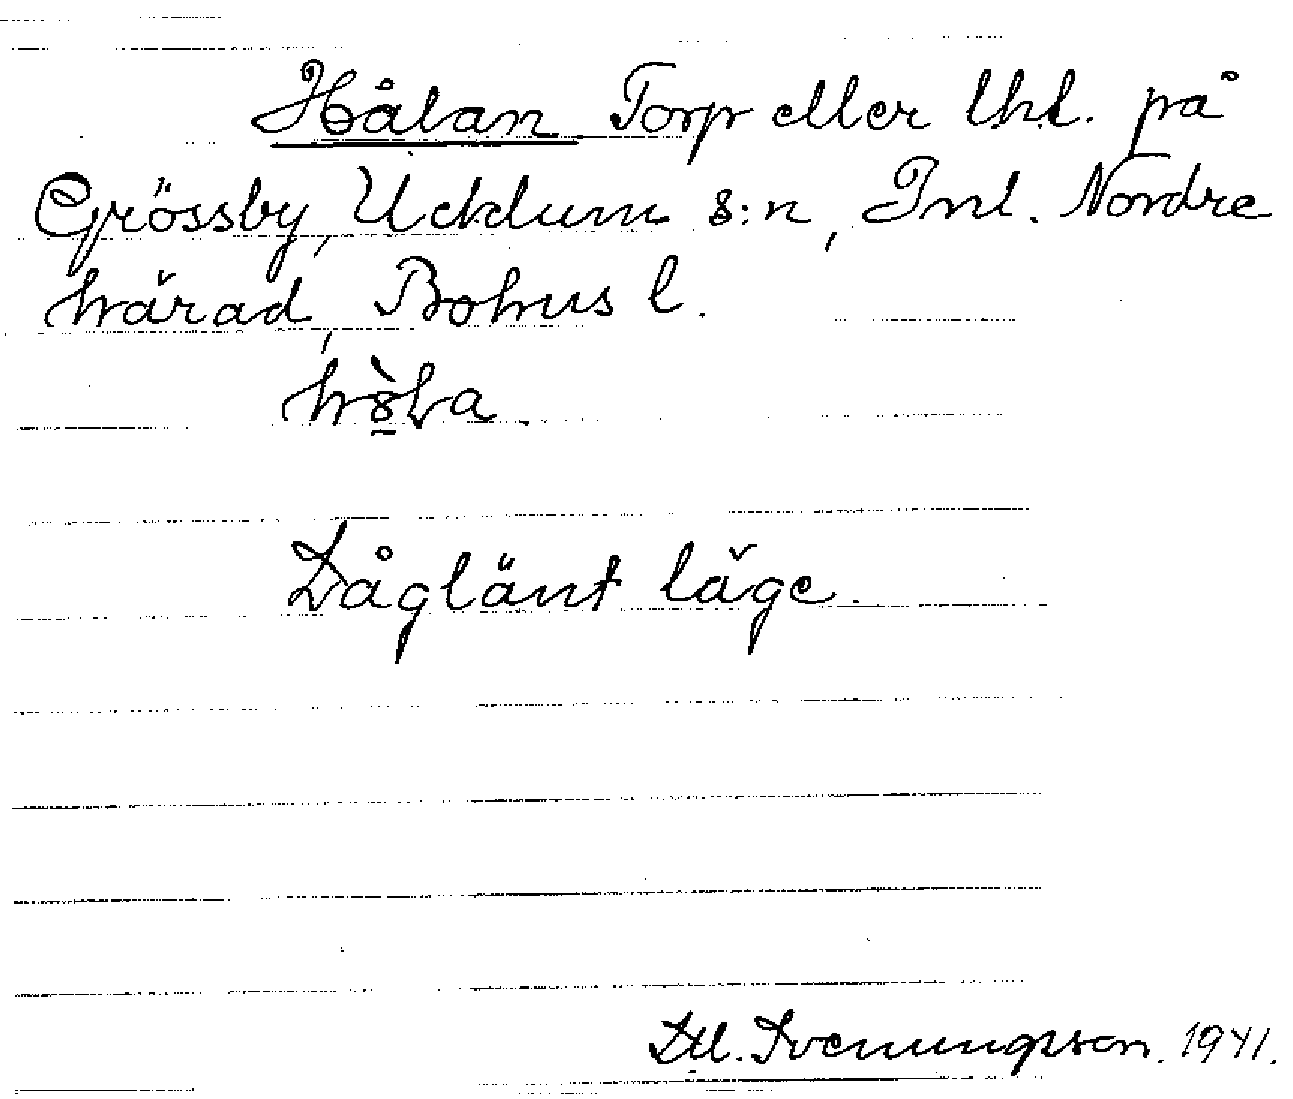 Hålan Torp eller lht. på
Grössby, Ucklum s:n, Inl. Nordre
härad, Bohus l.
Låglänt läge.
Svenungsson. 1941.